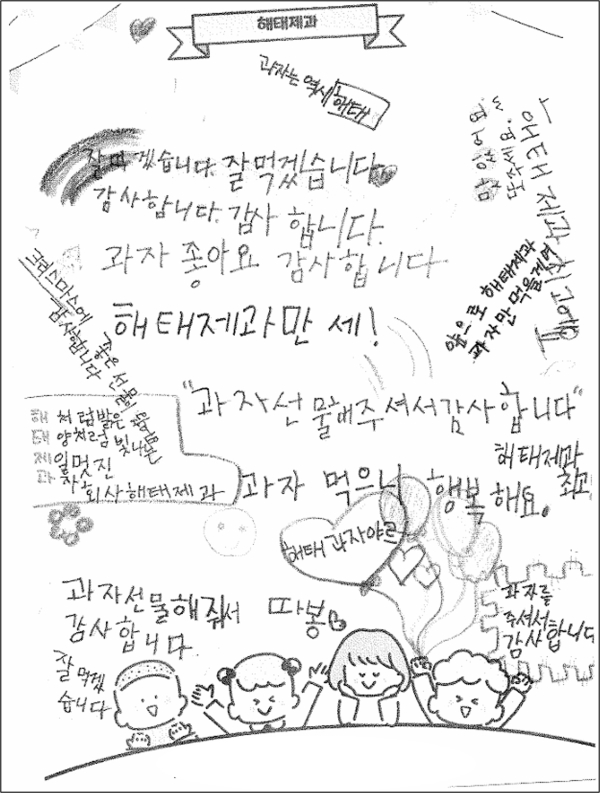 해태제과
과자는 역시 해태
잘먹겠습니다. 잘먹겠습니다
감사합니다. 감사 합니다.
과자 좋아요 감사합니다
해태제과만 세!
맛있어여
해태제과 최고예요
앞으로 해태제과
과자만 먹을게여
크리스마스에
좋은 선물이
감사합니다
"과자선물해주셔서감사합니다"
해 처럼밝은
태 양처럼 빛나는
제일멋진
과자회사해태제과
과자 먹으니 행복해요.
해태제과
최고
해태 과자야르
과자선물해줘서 따봉
감사합니다.
잘 먹겠
습니다
과자를
주셔서
감사합니다